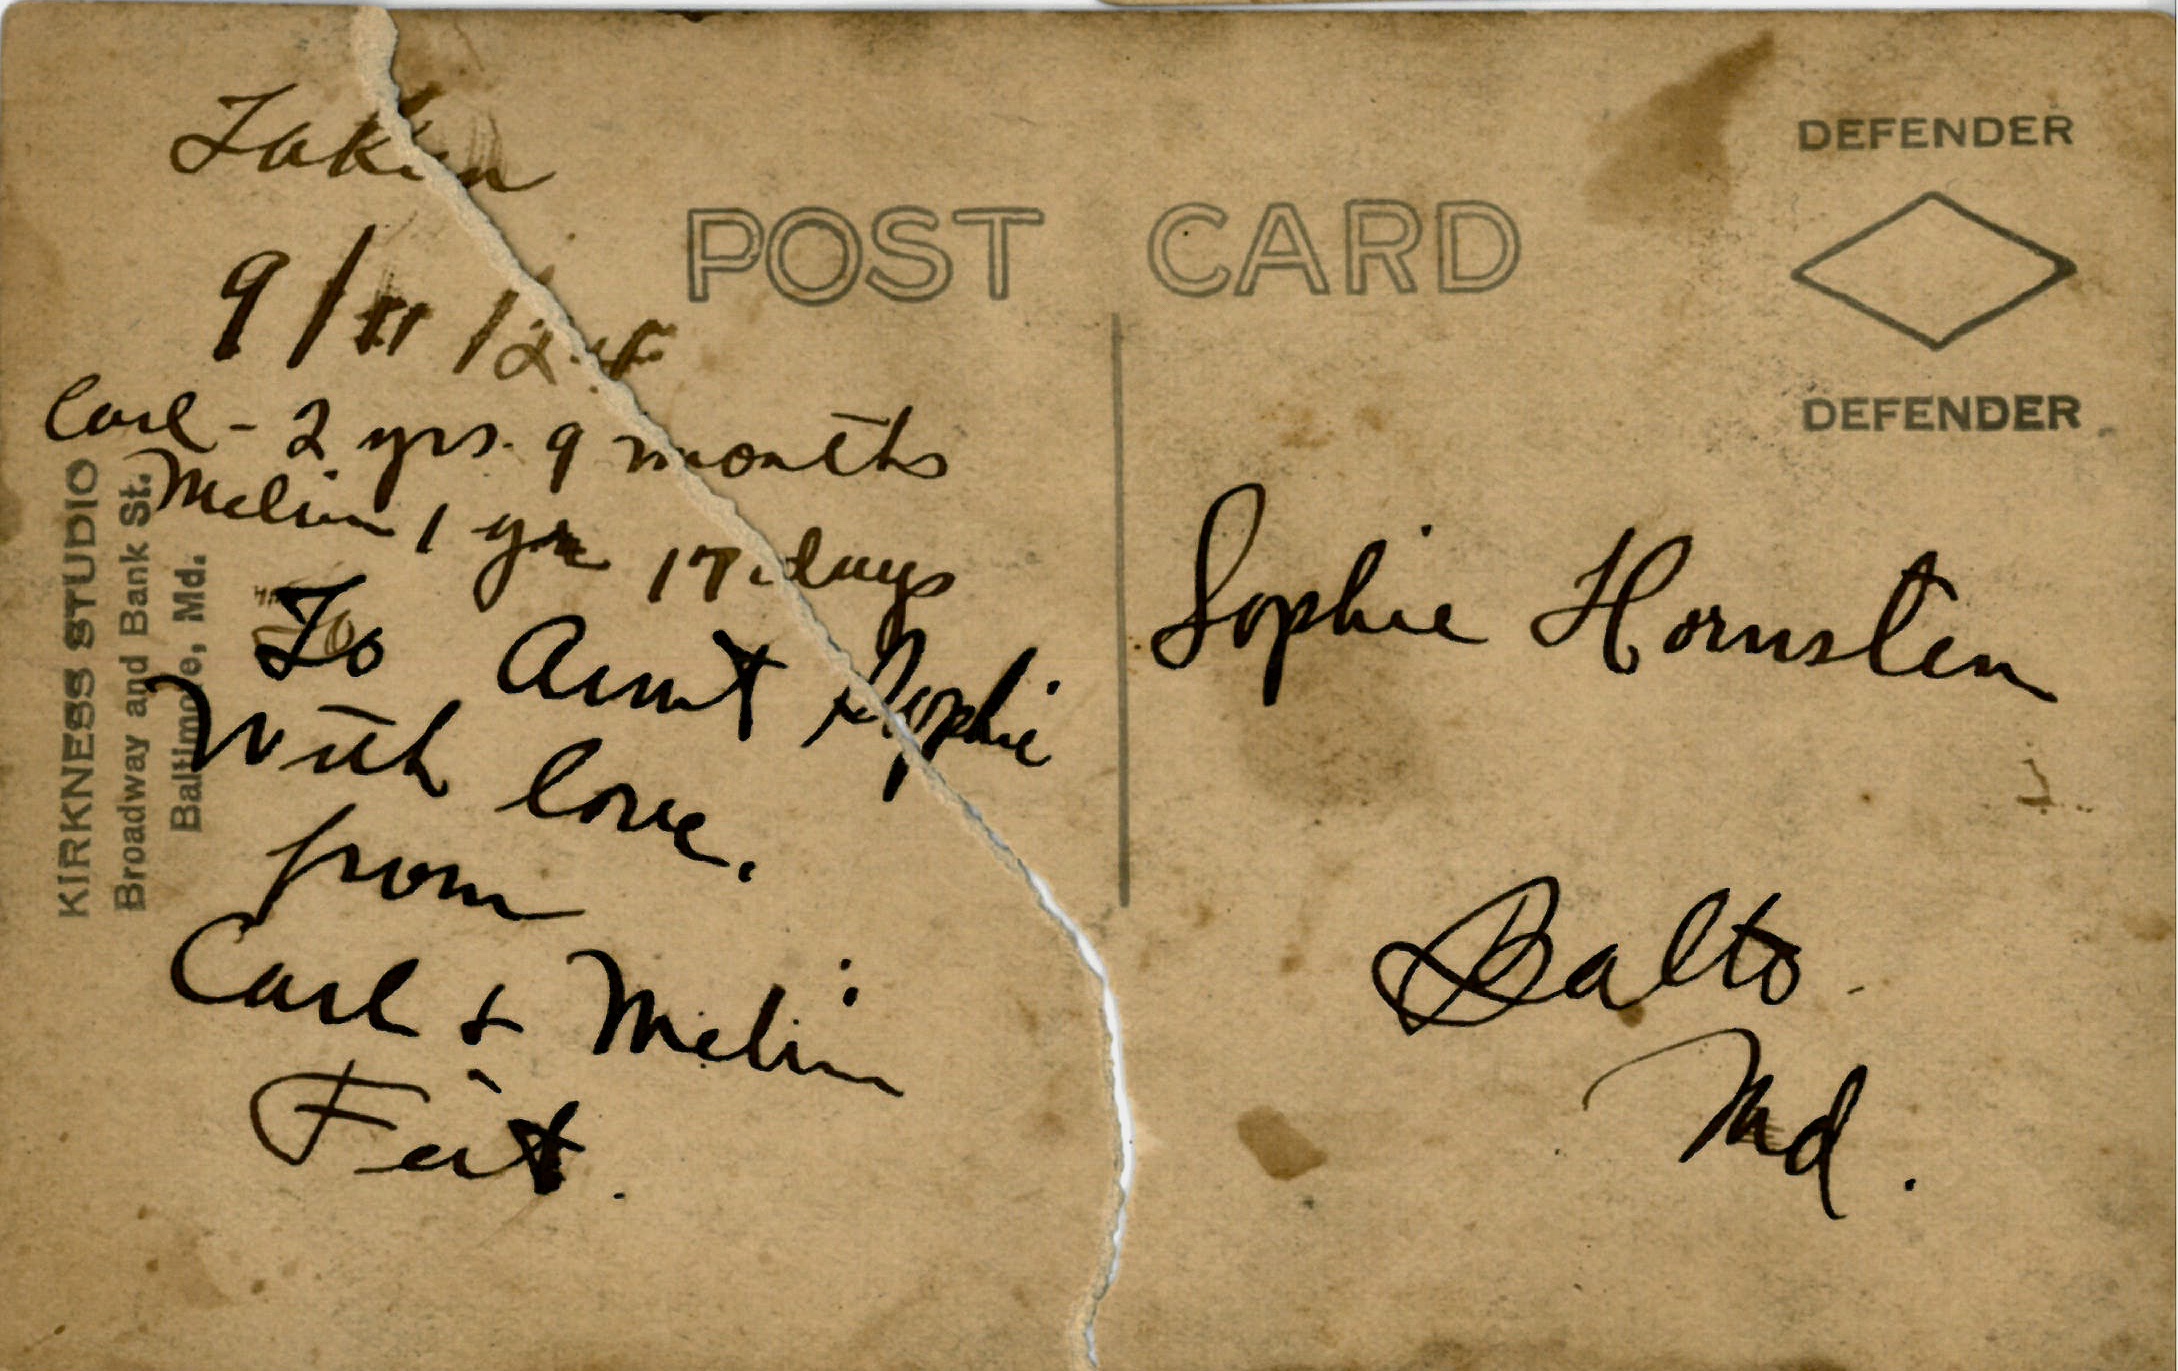 Taken
9/11/2
Carl - 2 yrs. 9 months
Melvin 1 yr 17 days
To Aunt Sophie
With love.
from
Carl & Melvin
Feit.
KIRKNESS STUDIO
Broadway and Bank St.
Baltimore, Md.
POST CARD
DEFENDER
DEFENDER
Sophie Hornstein
Balto.
Md.